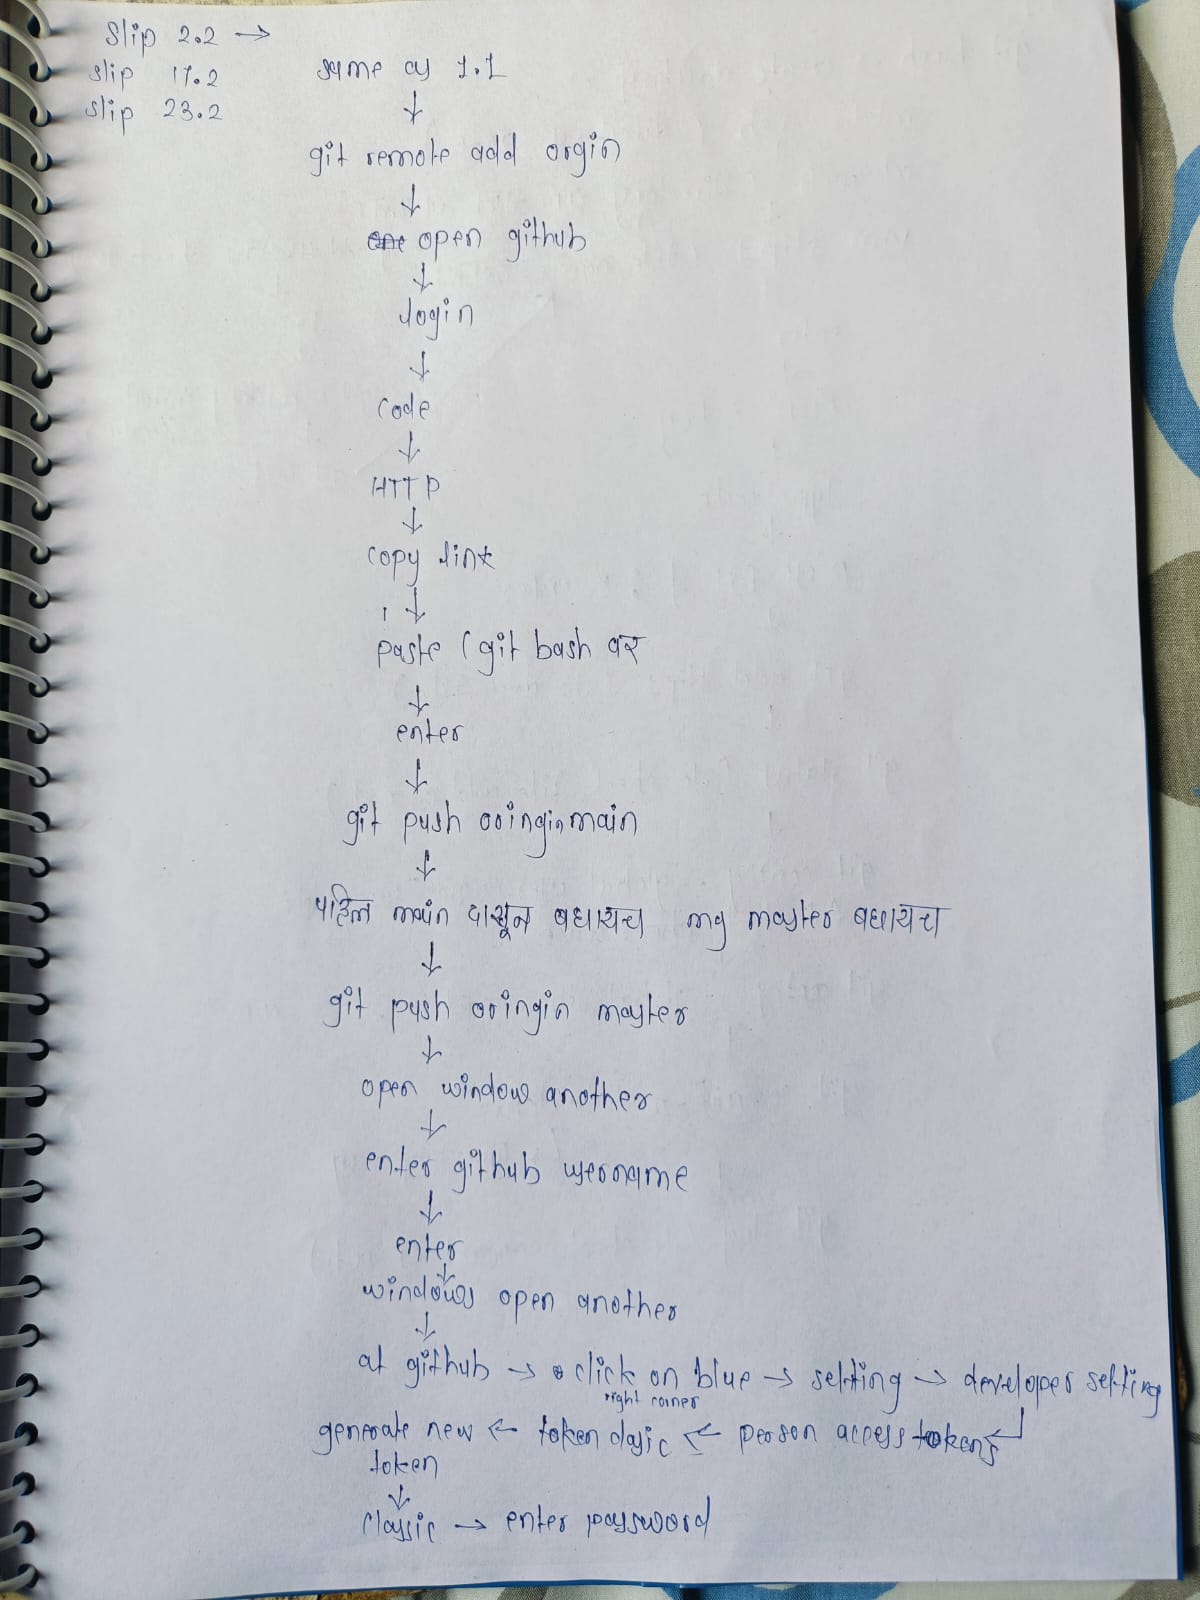 Slip 2.2 →
slip 17.2
same as 1.1
slip 23.2
↓
git remote add orgin
↓
open github
↓
login
↓
code
↓
HTTP
↓
copy link
↓
paste (git bash वर
↓
enter
↓
git push oringin main
↓
पहिल main टाकून बघायच mg master बघायच
↓
git push oringin master
↓
open window another
↓
enter github username
↓
enter
↓
windows open another
↓
at github → click on blue → setting → developer setting
right corner
generate new ← token clasic ← person access tokens
token
↓
classic → enter password